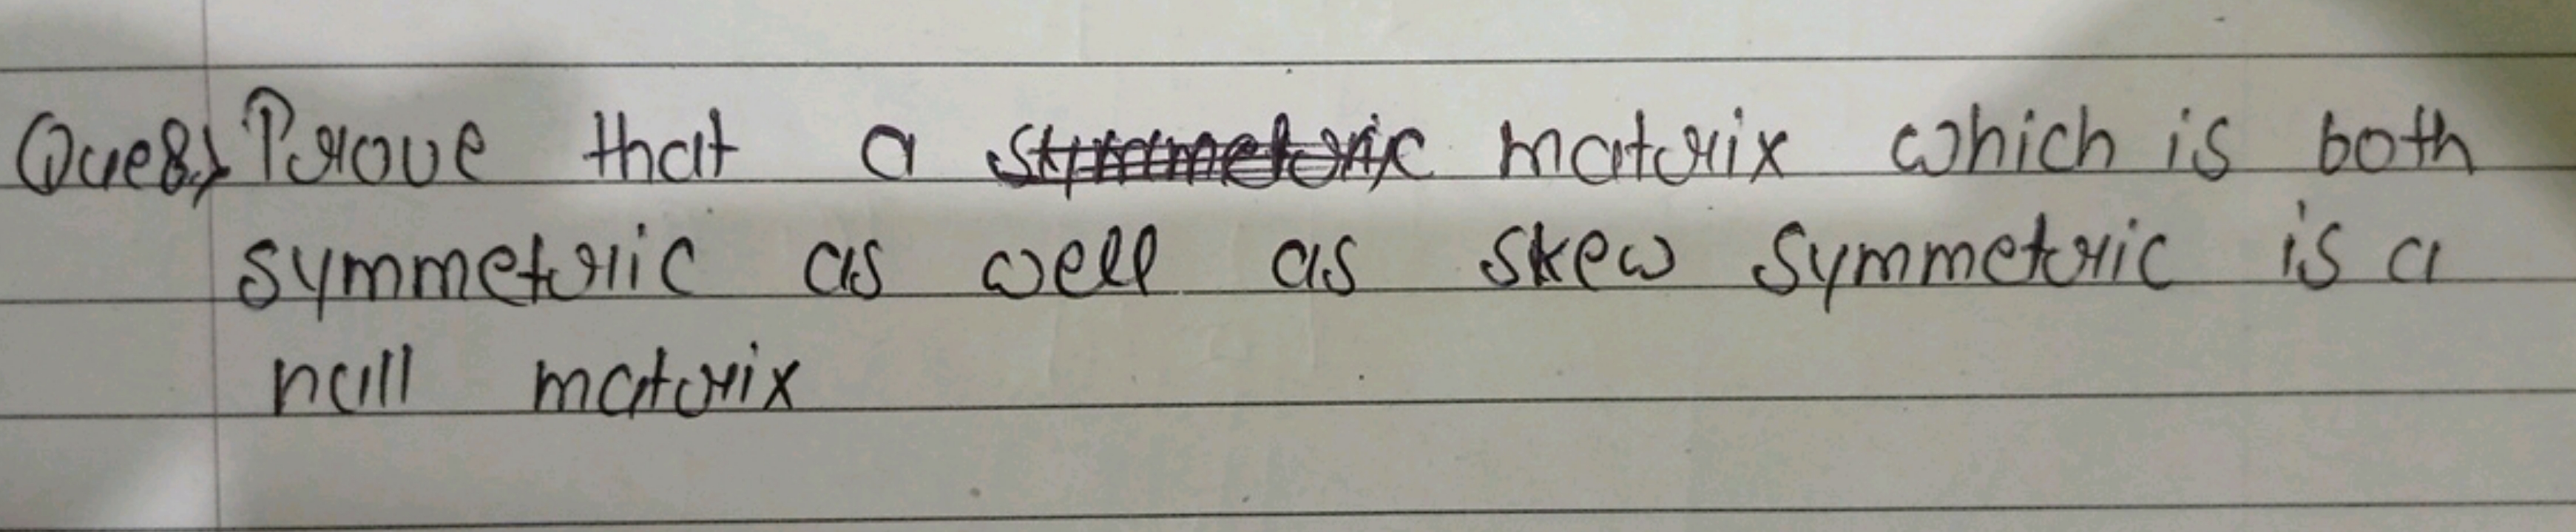 Que8) Prove that a symmetric matrix which is both
symmetric as well as skew symmetric is a
null matrix